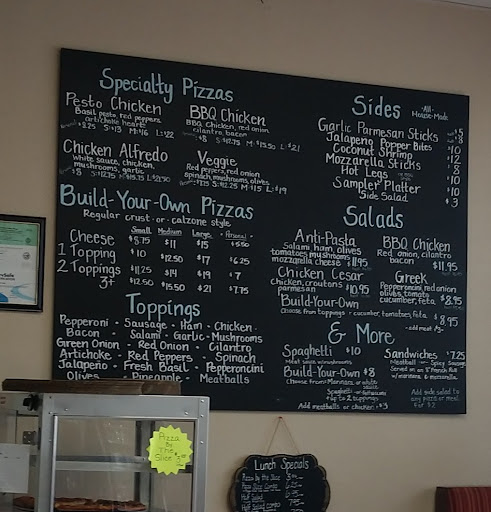 Specialty Pizzas
Pesto Chicken
Basil pesto, red peppers,
artichoke hearts
$8.25 S:$13 M:$16 L:$22
BBQ Chicken
BBQ Chicken, red onion
cilantro, bacon
$8 S:$12.75 M:$15.50 L:$21
Chicken Alfredo
white sauce, chicken,
mushrooms, garlic
$8
Veggie
Red peppers, red onion
spinach, mushrooms, olives
S:$12.25 M:$15 L:$19
Build-Your-Own Pizzas
Regular crust or calzone style
Small Medium Large Personal
Cheese $8.75 $11 $15
1 Topping $10 $12.50 $17 $6.25
2 Toppings $11.25 $14 $19 $7
3+ $12.50 $15.50 $21 $7.75
Toppings
Pepperoni - Sausage - Ham - Chicken -
Bacon - Salami - Garlic - Mushrooms
Green Onion - Red Onion - Cilantro
Artichoke - Red Peppers - Spinach
Jalapeño - Fresh Basil - Pepperoncini
Olives - Pineapple - Meatballs
Sides
All
House-Made
Garlic Parmesan Sticks $5
Jalapeno Popper Bites $8
Coconut Shrimp $10
Mozzarella Sticks $12
Hot Legs $8
Sampler Platter $10
Side Salad $3
Salads
Anti-Pasta
Salami, ham, olives
tomatoes, mushrooms
mozzarella cheese $11.95
BBQ Chicken
Red onion, cilantro
bacon
$11.95
Chicken Cesar
Chicken, croutons
parmesan $10.95
Greek
Pepperoncini, red onion
olives, tomato
cucumber, feta $8.95
Build-Your-Own
Choose from toppings + cucumber, tomatoes, feta $8.95
& More
Spaghetti $10
Meat sauce w/mushrooms
Build-Your-Own $8
Choose from: Marinara or white
sauce
Spaghetti or
+up to 2 toppings
Add meatballs or chicken + $3
Sandwiches $7.25
Meatball or Spicy Sausage
Served on an 8" French Roll
w/marinara & mozzarella
Add side salad to
any pizza or meal
for $2
Pizza
By
The
Slice
Lunch Specials
Pizza by the Slice
Pizza Slice Combo
Half Salad
Half Salad Combo